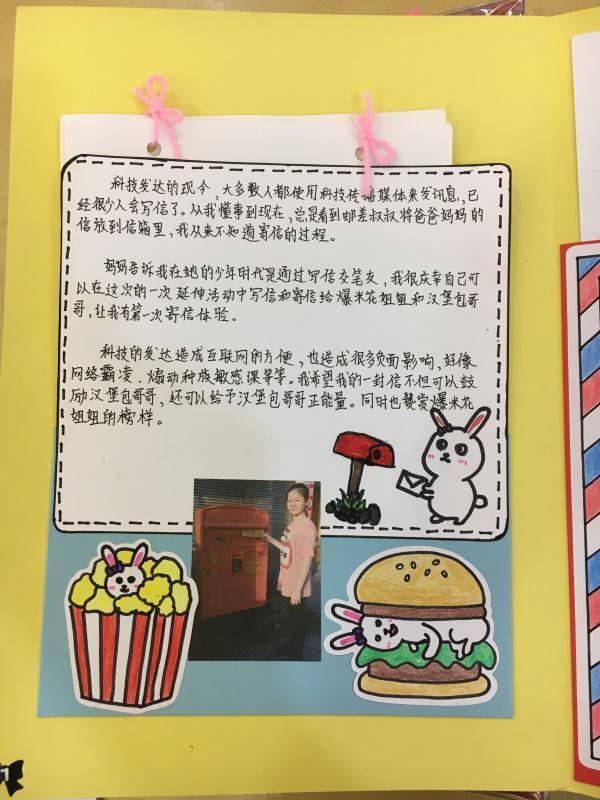 科技发达的现今，大多数人都使用科技传播媒体来发讯息，已
经很少人会写信了。从我懂事到现在，总是看到邮差叔叔将爸爸妈妈的
信放到信箱里，我从来不知道寄信的过程。
妈妈告诉我在她的少年时代是通过写信交笔友，我很庆幸自己可
以在这次的一次延伸活动中写信和寄信给爆米花姐姐和汉堡包哥
哥，让我有第一次寄信体验。
科技的发达造成互联网的方便，也造成很多负面影响，好像
网络霸凌、煽动种族敏感课等等。我希望我的一封信不但可以鼓
励汉堡包哥哥，还可以给予汉堡包哥哥正能量。同时也赞赏爆米花
姐姐的榜样。